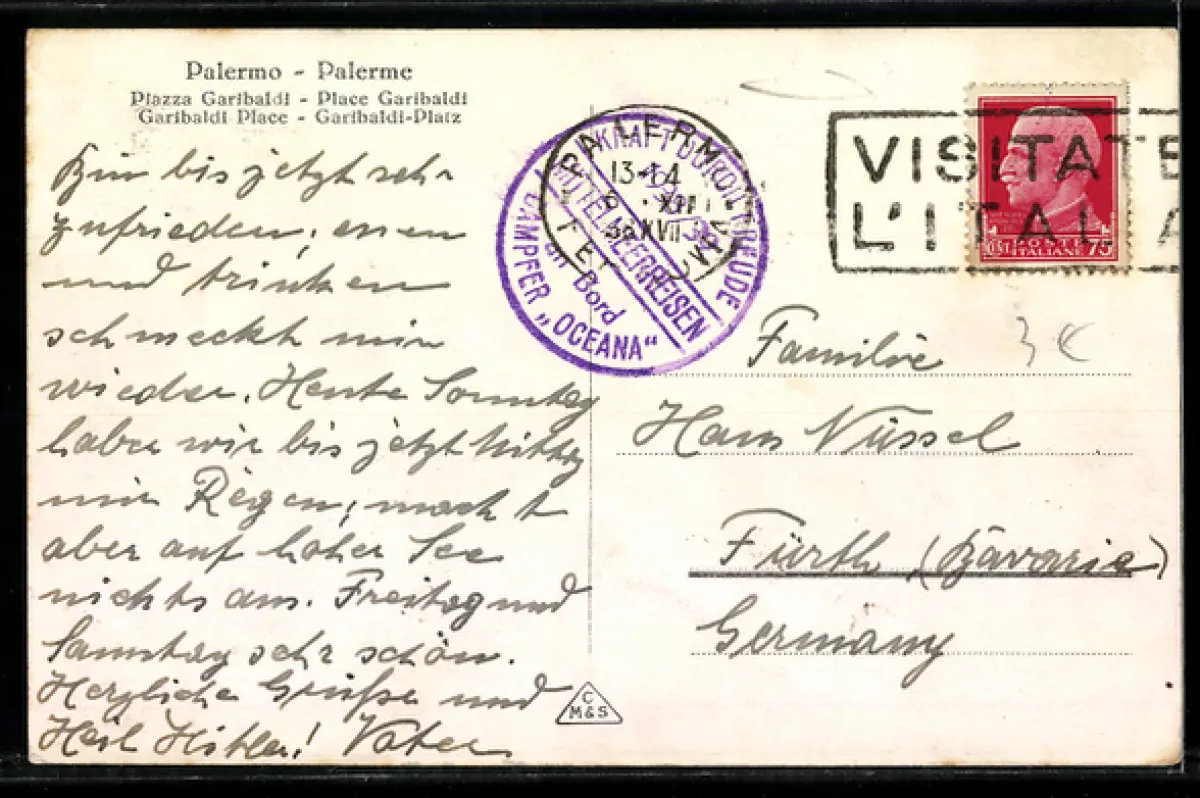 Palermo - Palerme
Piazza Garibaldi - Place Garibaldi
Garibaldi Place - Garibaldi-Platz
Bin bis jetzt sehr
zufrieden, essen
und trinken
schmeckt mir
wieder. Heute Sonntag
haben wir bis jetzt Mittag
nur Regen, macht
aber auf hoher See
nichts aus. Freitag und
Samstag sehr schön.
Herzliche Grüße und
Heil Hitler! Vater
KRAFT DURCH FREUDE
MITTELMEERREISEN
an Bord
DAMPFER „OCEANA“
PALERMO
13-14
XII
38 XVII
VISITATE
L'ITAL A
POSTE
ITALIANE 75
Familie
Hans Nüssel
Fürth (Bavaria)
Germany
3 €
C
M&S